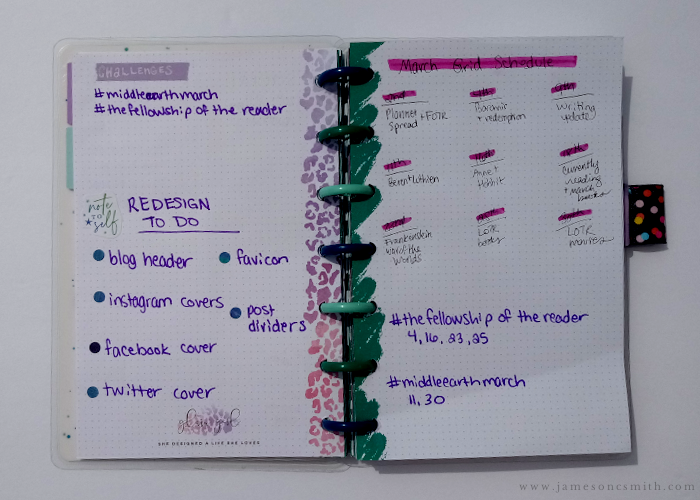 CHALLENGES
#middleearthmarch
#thefellowship of the reader
note
TO
self
REDESIGN
TO DO
blog header
favicon
instagram covers
post
dividers
facebook cover
twitter cover
SHE DESIGNED A LIFE SHE LOVED
March Grid Schedule
Planner + FOTR
Spread
Boromir
+ redemption
Writing
update
Beren + Luthien
Anne +
Hobbit
Currently
reading
+ March
books
Frankenstein
War of the
Worlds
LOTR
books
LOTR
movies
#thefellowship of the reader
4, 16, 23, 25
#middleearthmarch
11, 30
www.jamesoncsmith.com